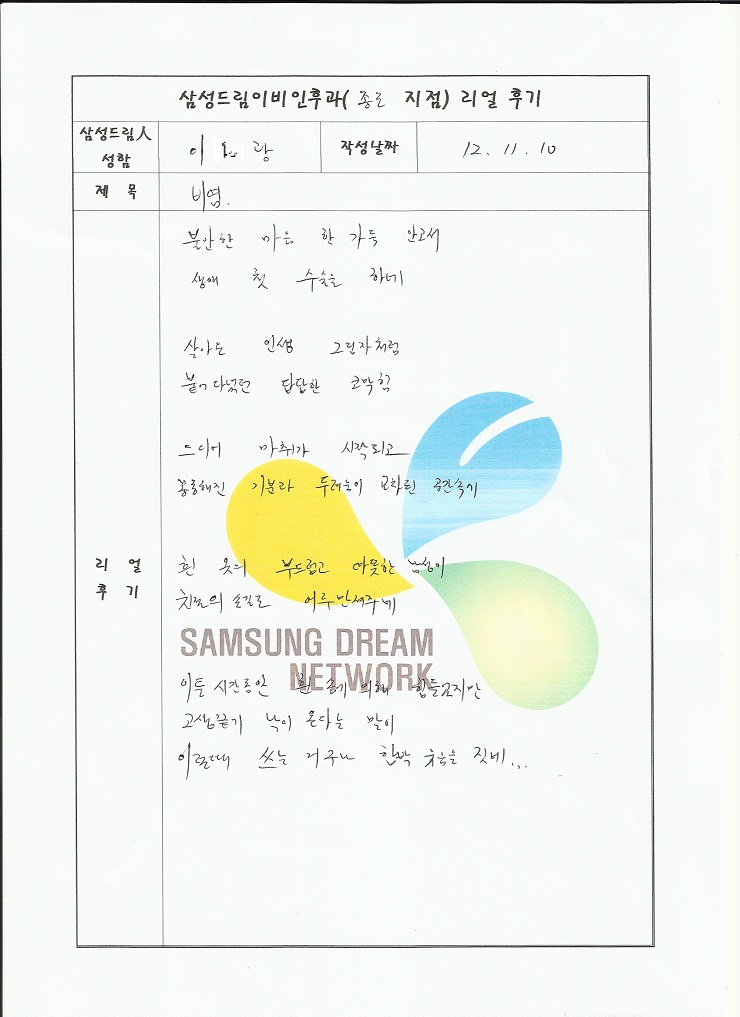 삼성드림이비인후과( 종로 지점) 리얼 후기
삼성드림人 성함
이 광
작성날짜
12. 11. 10
제 목
비염.
리 얼 후 기
불안한 마음 한 가득 안고서
생애 첫 수술을 하네
살아온 인생 그림자처럼
붙어 다녔던 답답한 코막힘
드디어 마취가 시작되고
몽롱해진 기분과 두려움이 교차된 공간속기
흰 옷의 부드럽고 따뜻한 남성이
친절의 손길로 어루만져주네
이틀 시간동안 흰 솜에 의해 힘들었지만
고생끝기 낙이 온다는 말이
이럴때 쓰는 거구나 함박 웃음을 짓네...
SAMSUNG DREAM
NETWORK